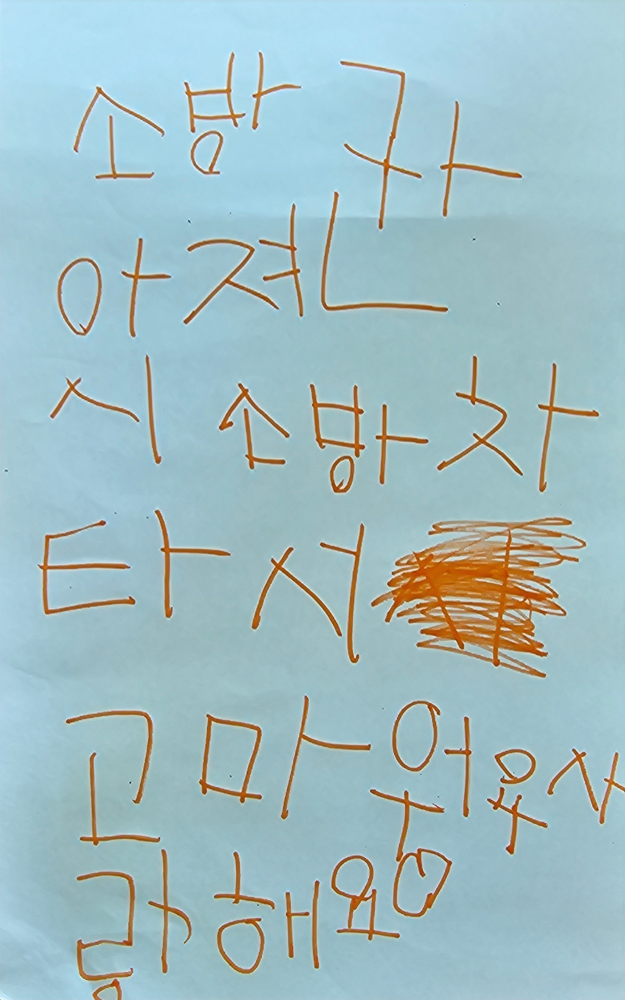 소방 카
아젼
시 소방 차
타 서
고 마 워 요 사
랑 해 요